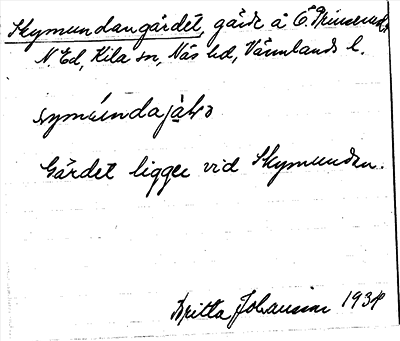 Skymundangärdet, gärde å Ö.
N. Ed, Kila sn, Näs hd, Värmlands l.
Gärdet ligger vid Skymundan.
Britta Johansson 1934